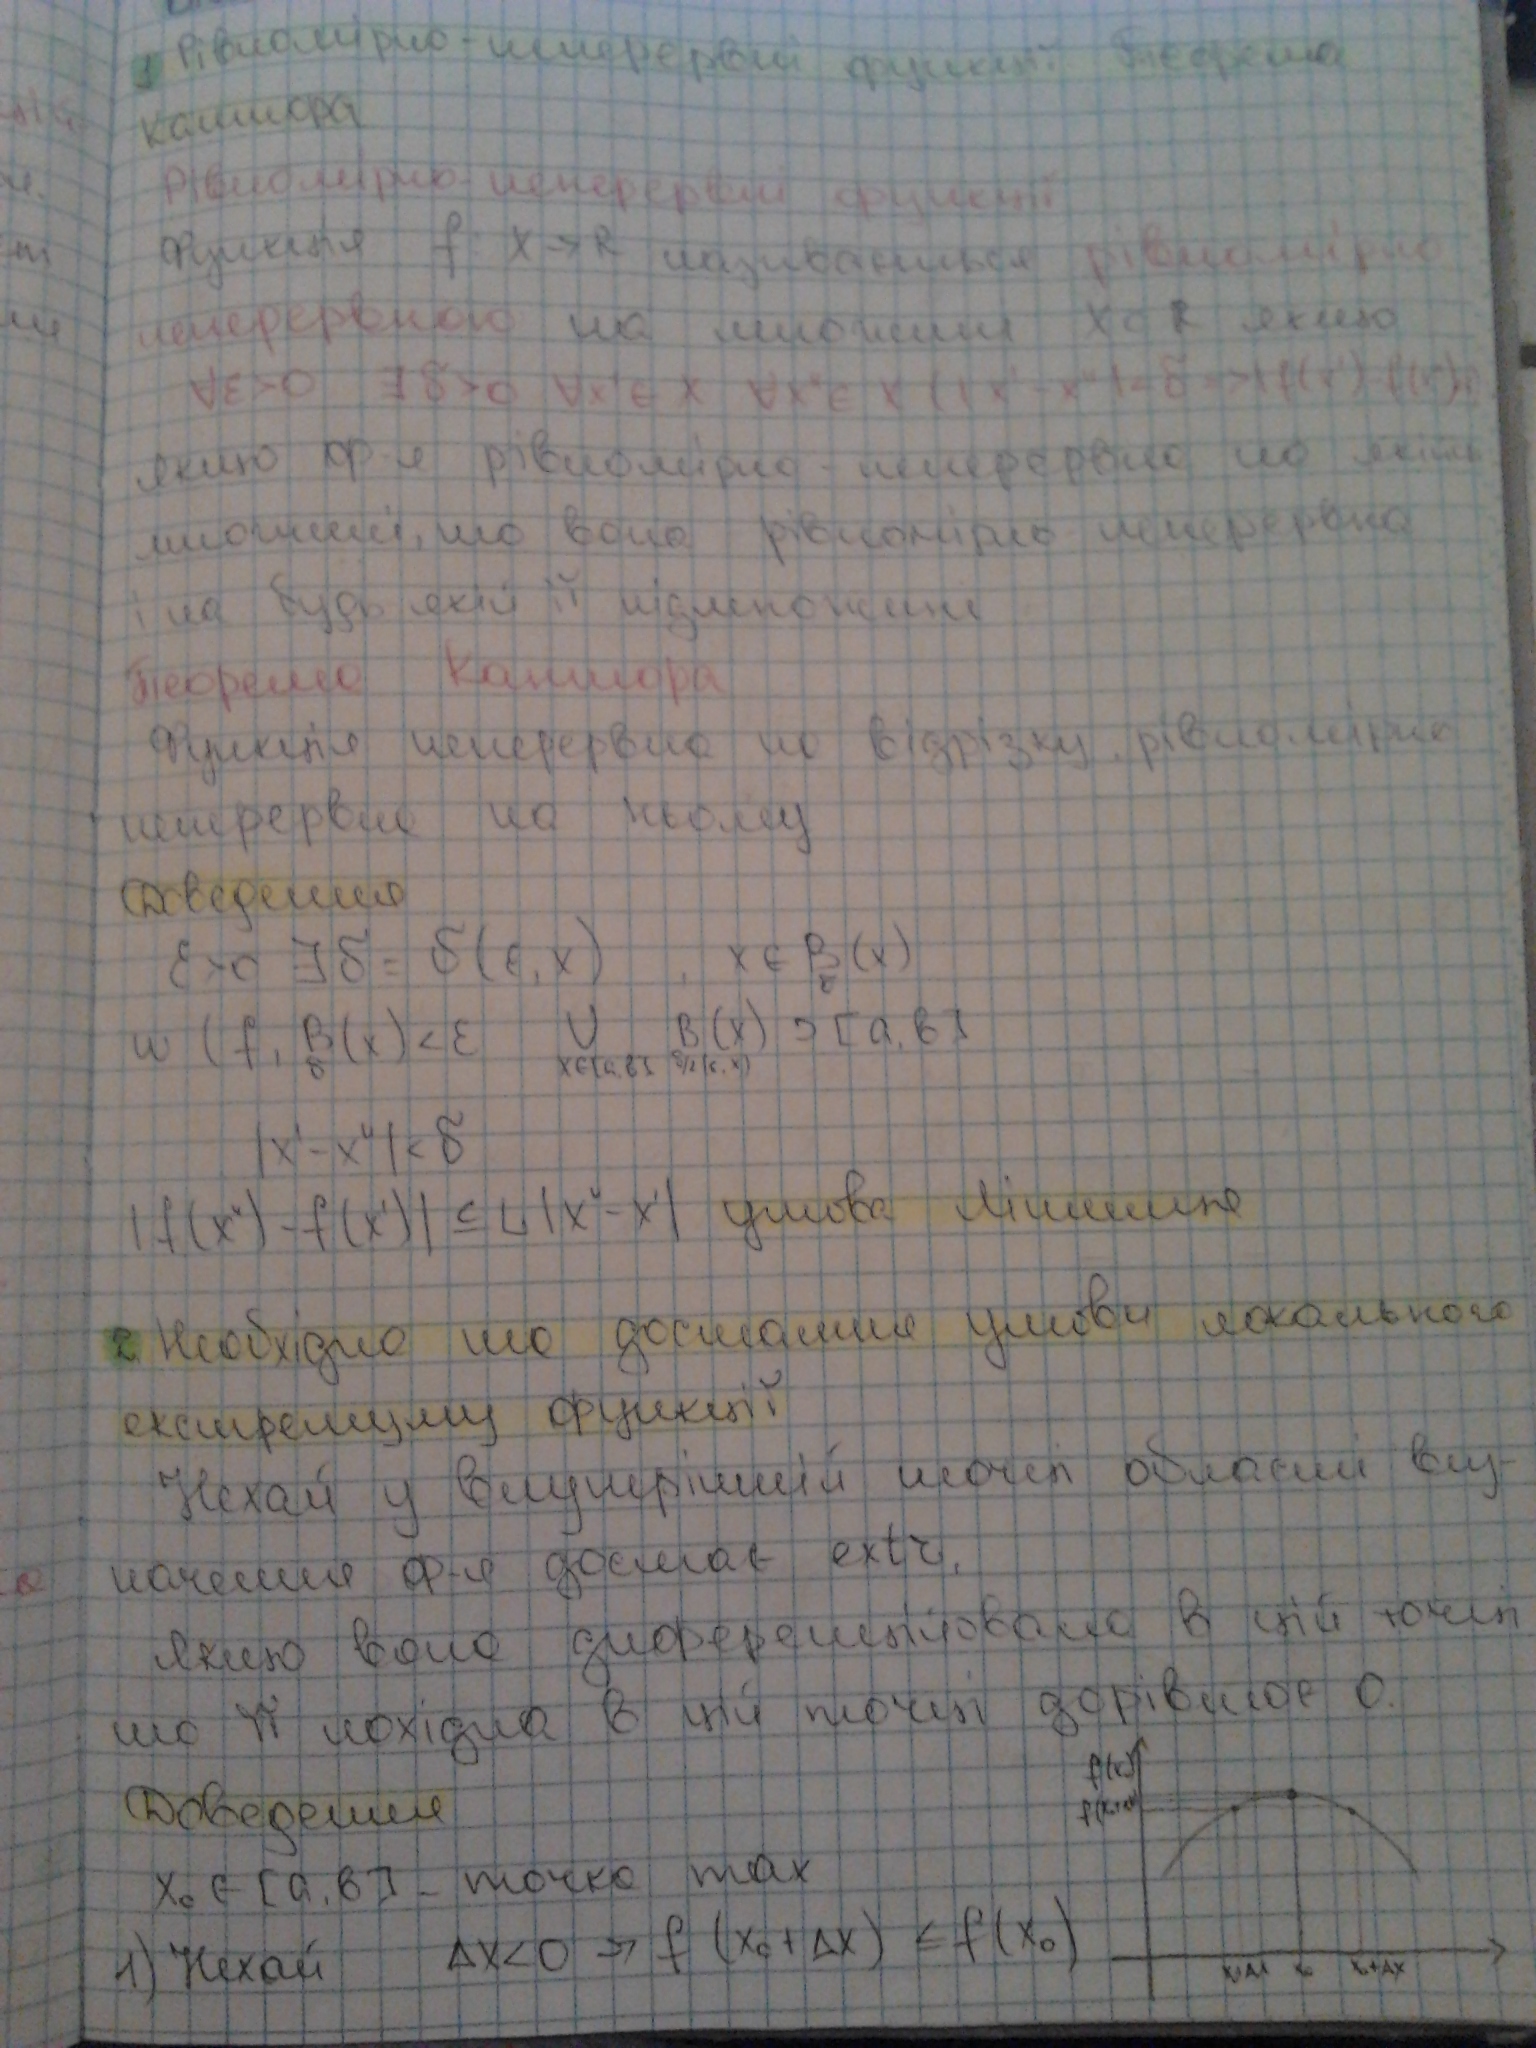 1 Рівномірно-неперервні функції. Теорема
Кантора
Рівномірно-неперервні функції
Функція f: X→R називається рівномірно
неперервною на множині X⊂R якщо
∀ε>0 ∃δ>0 ∀x'∈X ∀x''∈X (|x'-x''|<δ=>|f(x')-f(x'')|
якщо ф-я рівномірно-неперервна на якійсь
множині, то вона рівномірно неперервна
і на будь якій її підмножині
Теорема Кантора
Функція неперервна на відрізку, рівномірно
неперервна на ньому
Доведення
ε>0 ∃δ = δ(ε,x) , x∈B_δ(x)
ω(f, B_δ(x)<ε ∪_{x∈[a,b]} B_{δ/2(ε,x)}(x) ⊃ [a,b]
|x'-x''|<δ
|f(x'')-f(x')| ≤ L|x''-x'| умова Ліпшица
2. Необхідна та достатня умови локального
екстремуму функції
Нехай у внутрішній точці області виз-
начення ф-я досягає extr.
Якщо вона диференційована в цій точці
то її похідна в цій точці дорівнює 0.
Доведення
x₀∈[a,b] - точка max
1) Нехай Δx<0 → f(x₀+Δx) ≤ f(x₀)
f(x)
x₀
x₀+Δx